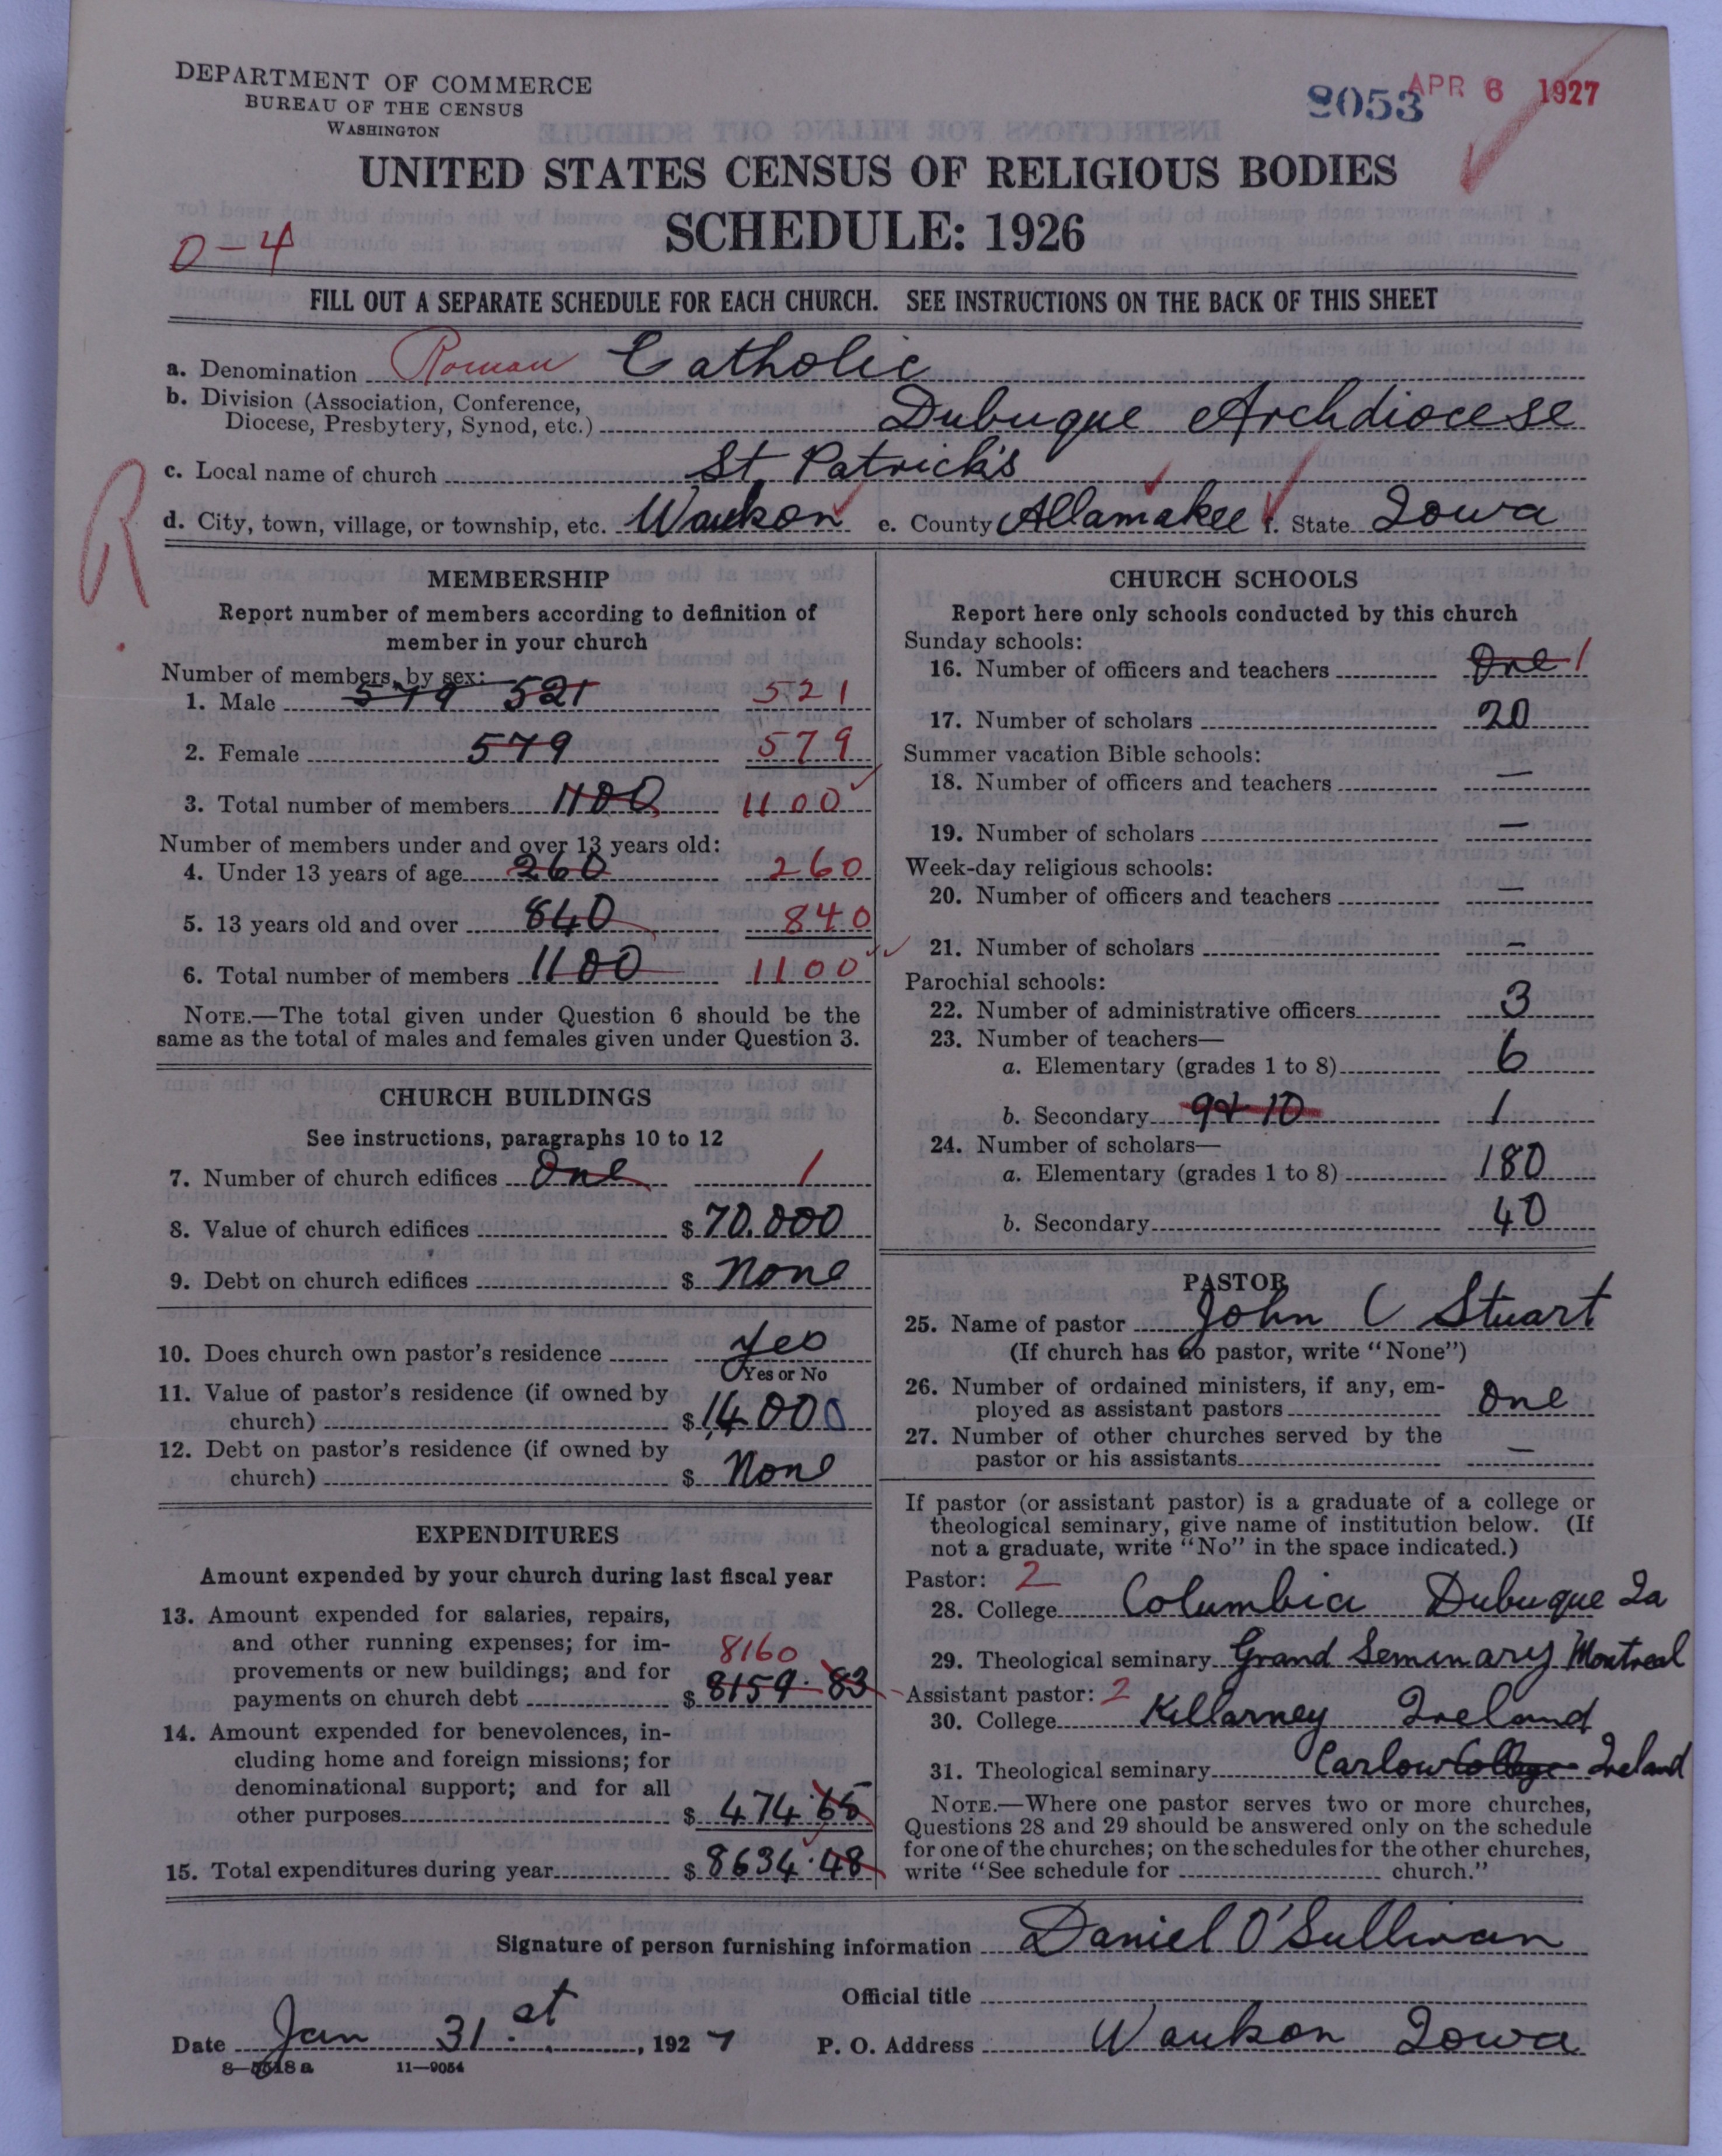 DEPARTMENT OF COMMERCE
BUREAU OF THE CENSUS
WASHINGTON
8053
APR 6 1927
UNITED STATES CENSUS OF RELIGIOUS BODIES
SCHEDULE: 1926
0-4
FILL OUT A SEPARATE SCHEDULE FOR EACH CHURCH. SEE INSTRUCTIONS ON THE BACK OF THIS SHEET
a. Denomination Roman Catholic
b. Division (Association, Conference,
Diocese, Presbytery, Synod, etc.) Dubuque Archdiocese
c. Local name of church St Patrick's
d. City, town, village, or township, etc. Waukon e. County Allamakee f. State Iowa
R
MEMBERSHIP
Report number of members according to definition of
member in your church
Number of members, by sex:
1. Male 579 521 521
2. Female 579 579
3. Total number of members 1100 1100
Number of members under and over 13 years old:
4. Under 13 years of age 260 260
5. 13 years old and over 840 840
6. Total number of members 1100 1100
NOTE.—The total given under Question 6 should be the
same as the total of males and females given under Question 3.
CHURCH BUILDINGS
See instructions, paragraphs 10 to 12
7. Number of church edifices One 1
8. Value of church edifices $ 70.000
9. Debt on church edifices $ None
10. Does church own pastor's residence Yes
Yes or No
11. Value of pastor's residence (if owned by
church) $ 14,000
12. Debt on pastor's residence (if owned by
church) $ None
EXPENDITURES
Amount expended by your church during last fiscal year
13. Amount expended for salaries, repairs,
and other running expenses; for im-
provements or new buildings; and for 8160
payments on church debt $ 8159.83
14. Amount expended for benevolences, in-
cluding home and foreign missions; for
denominational support; and for all
other purposes $ 474.65
15. Total expenditures during year $ 8634.48
CHURCH SCHOOLS
Report here only schools conducted by this church
Sunday schools:
16. Number of officers and teachers One 1
17. Number of scholars 20
Summer vacation Bible schools:
18. Number of officers and teachers —
19. Number of scholars —
Week-day religious schools:
20. Number of officers and teachers —
21. Number of scholars —
Parochial schools:
22. Number of administrative officers 3
23. Number of teachers—
a. Elementary (grades 1 to 8) 6
b. Secondary 9 & 10 1
24. Number of scholars—
a. Elementary (grades 1 to 8) 180
b. Secondary 40
PASTOR
25. Name of pastor John C Stuart
(If church has no pastor, write "None")
26. Number of ordained ministers, if any, em-
ployed as assistant pastors One
27. Number of other churches served by the
pastor or his assistants —
If pastor (or assistant pastor) is a graduate of a college or
theological seminary, give name of institution below. (If
not a graduate, write "No" in the space indicated.)
Pastor: 2
28. College Columbia Dubuque Ia
29. Theological seminary Grand Seminary Montreal
Assistant pastor: 2
30. College Killarney Ireland
31. Theological seminary Carlow College Ireland
NOTE.—Where one pastor serves two or more churches,
Questions 28 and 29 should be answered only on the schedule
for one of the churches; on the schedules for the other churches,
write "See schedule for church."
Signature of person furnishing information Daniel O'Sullivan
Official title
Date Jan 31.st, 1927 P. O. Address Waukon Iowa
8—5518a 11—9054